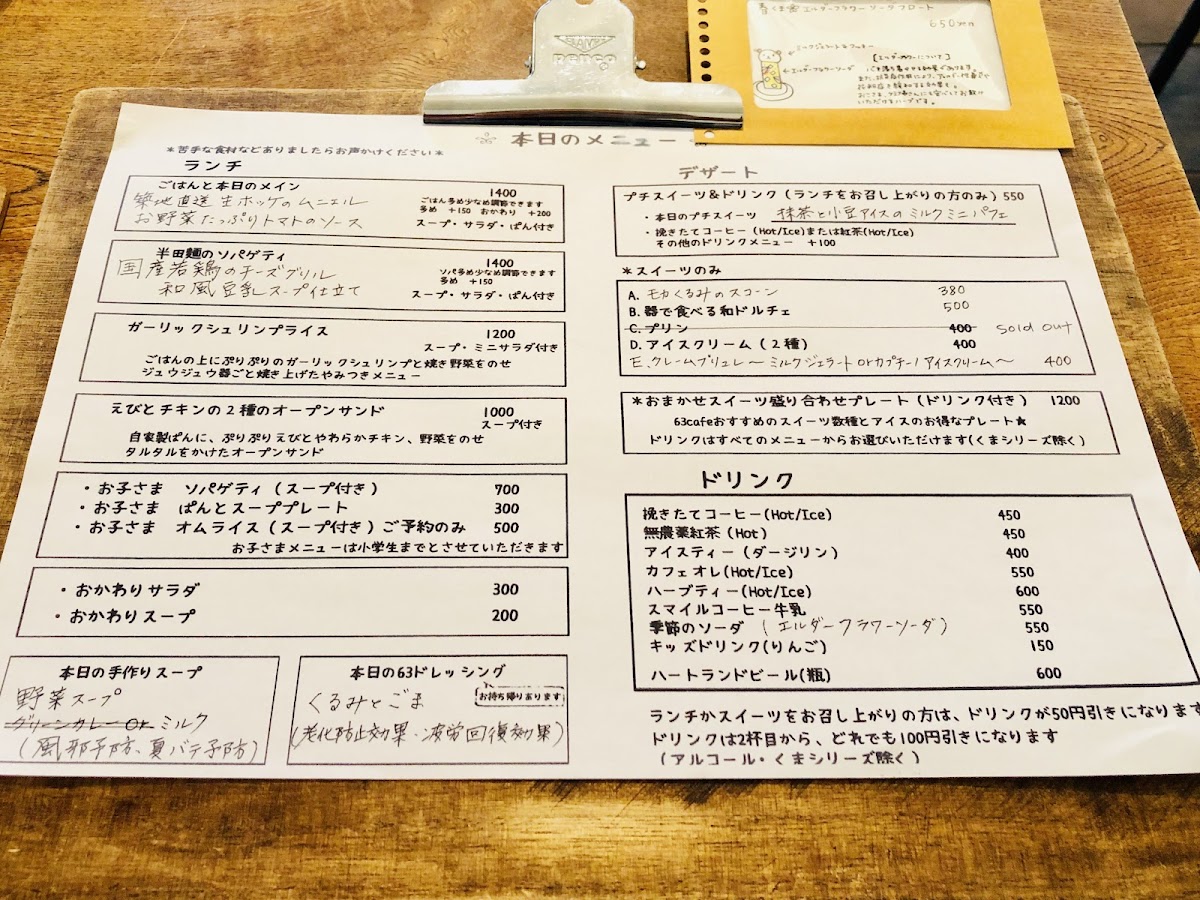 春くま㊎エルダーフラワーソーダフロート
650yen
←ミルクジェラート&クッキー
←エルダーフラワーソーダ
【エルダーフラワーについて】
心を落ち着かせる効果があります。
いただけるハーブです。
❊ 本日のメニュー
*苦手な食材などありましたらお声かけください*
ランチ
ごはんと本日のメイン 1400
築地直送 生ホッケのムニエル
お野菜たっぷりトマトのソース
ごはん多め少なめ調節できます
多め +150 おかわり +200
スープ・サラダ・ぱん付き
半田麺のソパゲティ 1400
国産若鶏のチーズグリル
和風豆乳スープ仕立て
ソパ多め少なめ調節できます
多め +150
スープ・サラダ・ぱん付き
ガーリックシュリンプライス 1200
スープ・ミニサラダ付き
ごはんの上にぷりぷりのガーリックシュリンプと焼き野菜をのせ
ジュウジュウ器ごと焼き上げたやみつきメニュー
えびとチキンの2種のオープンサンド 1000
スープ付き
自家製ぱんに、ぷりぷりえびとやわらかチキン、野菜をのせ
タルタルをかけたオープンサンド
・お子さま ソパゲティ(スープ付き) 700
・お子さま ぱんとスーププレート 300
・お子さま オムライス(スープ付き)ご予約のみ 500
お子さまメニューは小学生までとさせていただきます
・おかわりサラダ 300
・おかわりスープ 200
本日の手作りスープ
野菜スープ
グリーンカレー or ミルク
(風邪予防、夏バテ予防)
本日の63ドレッシング
お持ち帰りあります
くるみとごま
(老化防止効果・疲労回復効果)
デザート
プチスイーツ&ドリンク(ランチをお召し上がりの方のみ) 550
・本日のプチスイーツ 抹茶と小豆アイスのミルクミニパフェ
・挽きたてコーヒー(Hot/Ice)または紅茶(Hot/Ice)
その他のドリンクメニュー +100
*スイーツのみ
A. モカくるみのスコーン 380
B. 器で食べる和ドルチェ 500
C. プリン 400 Sold out
D. アイスクリーム(2種) 400
E. クレームブリュレ～ミルクジェラートorカプチーノアイスクリーム～ 400
*おまかせスイーツ盛り合わせプレート(ドリンク付き) 1200
63cafeおすすめのスイーツ数種とアイスのお得なプレート★
ドリンクはすべてのメニューからお選びいただけます(くまシリーズ除く)
ドリンク
挽きたてコーヒー(Hot/Ice) 450
無農薬紅茶(Hot) 450
アイスティー(ダージリン) 400
カフェオレ(Hot/Ice) 550
ハーブティー(Hot/Ice) 600
スマイルコーヒー牛乳 550
季節のソーダ (エルダーフラワーソーダ) 550
キッズドリンク(りんご) 150
ハートランドビール(瓶) 600
ランチかスイーツをお召し上がりの方は、ドリンクが50円引きになります
ドリンクは2杯目から、どれでも100円引きになります
(アルコール・くまシリーズ除く)